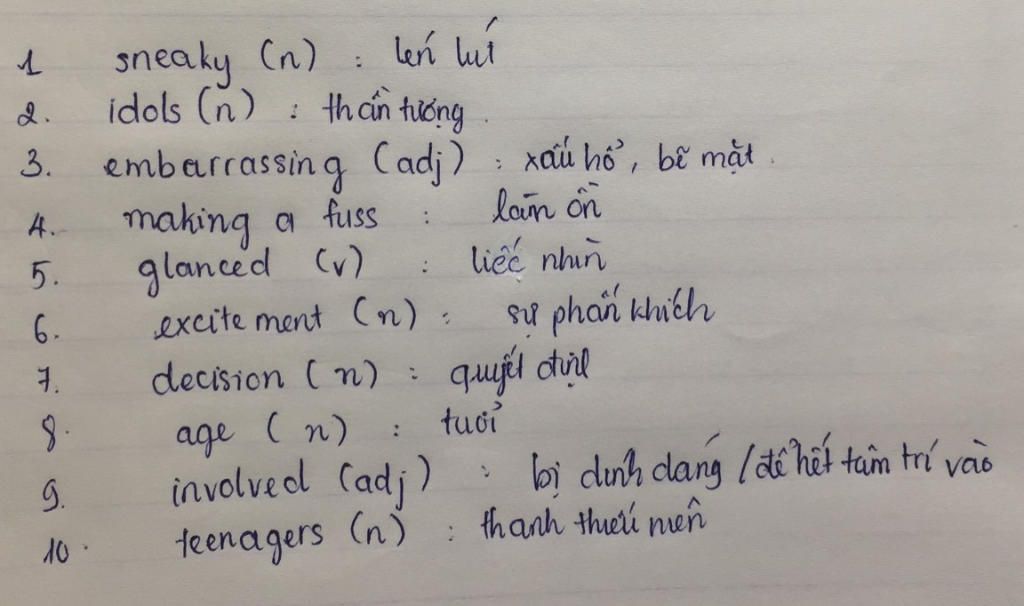 1 sneaky (n) : lén lút
2. idols (n) : thần tượng.
3. embarrassing (adj) : xấu hổ, bẽ mặt.
4. making a fuss : làm ồn
5. glanced (v) : liếc nhìn
6. excitement (n) : sự phấn khích
7. decision (n) : quyết định
8. age (n) : tuổi
9. involved (adj) : bị dính dáng / để hết tâm trí vào
10. teenagers (n) : thanh thiếu niên